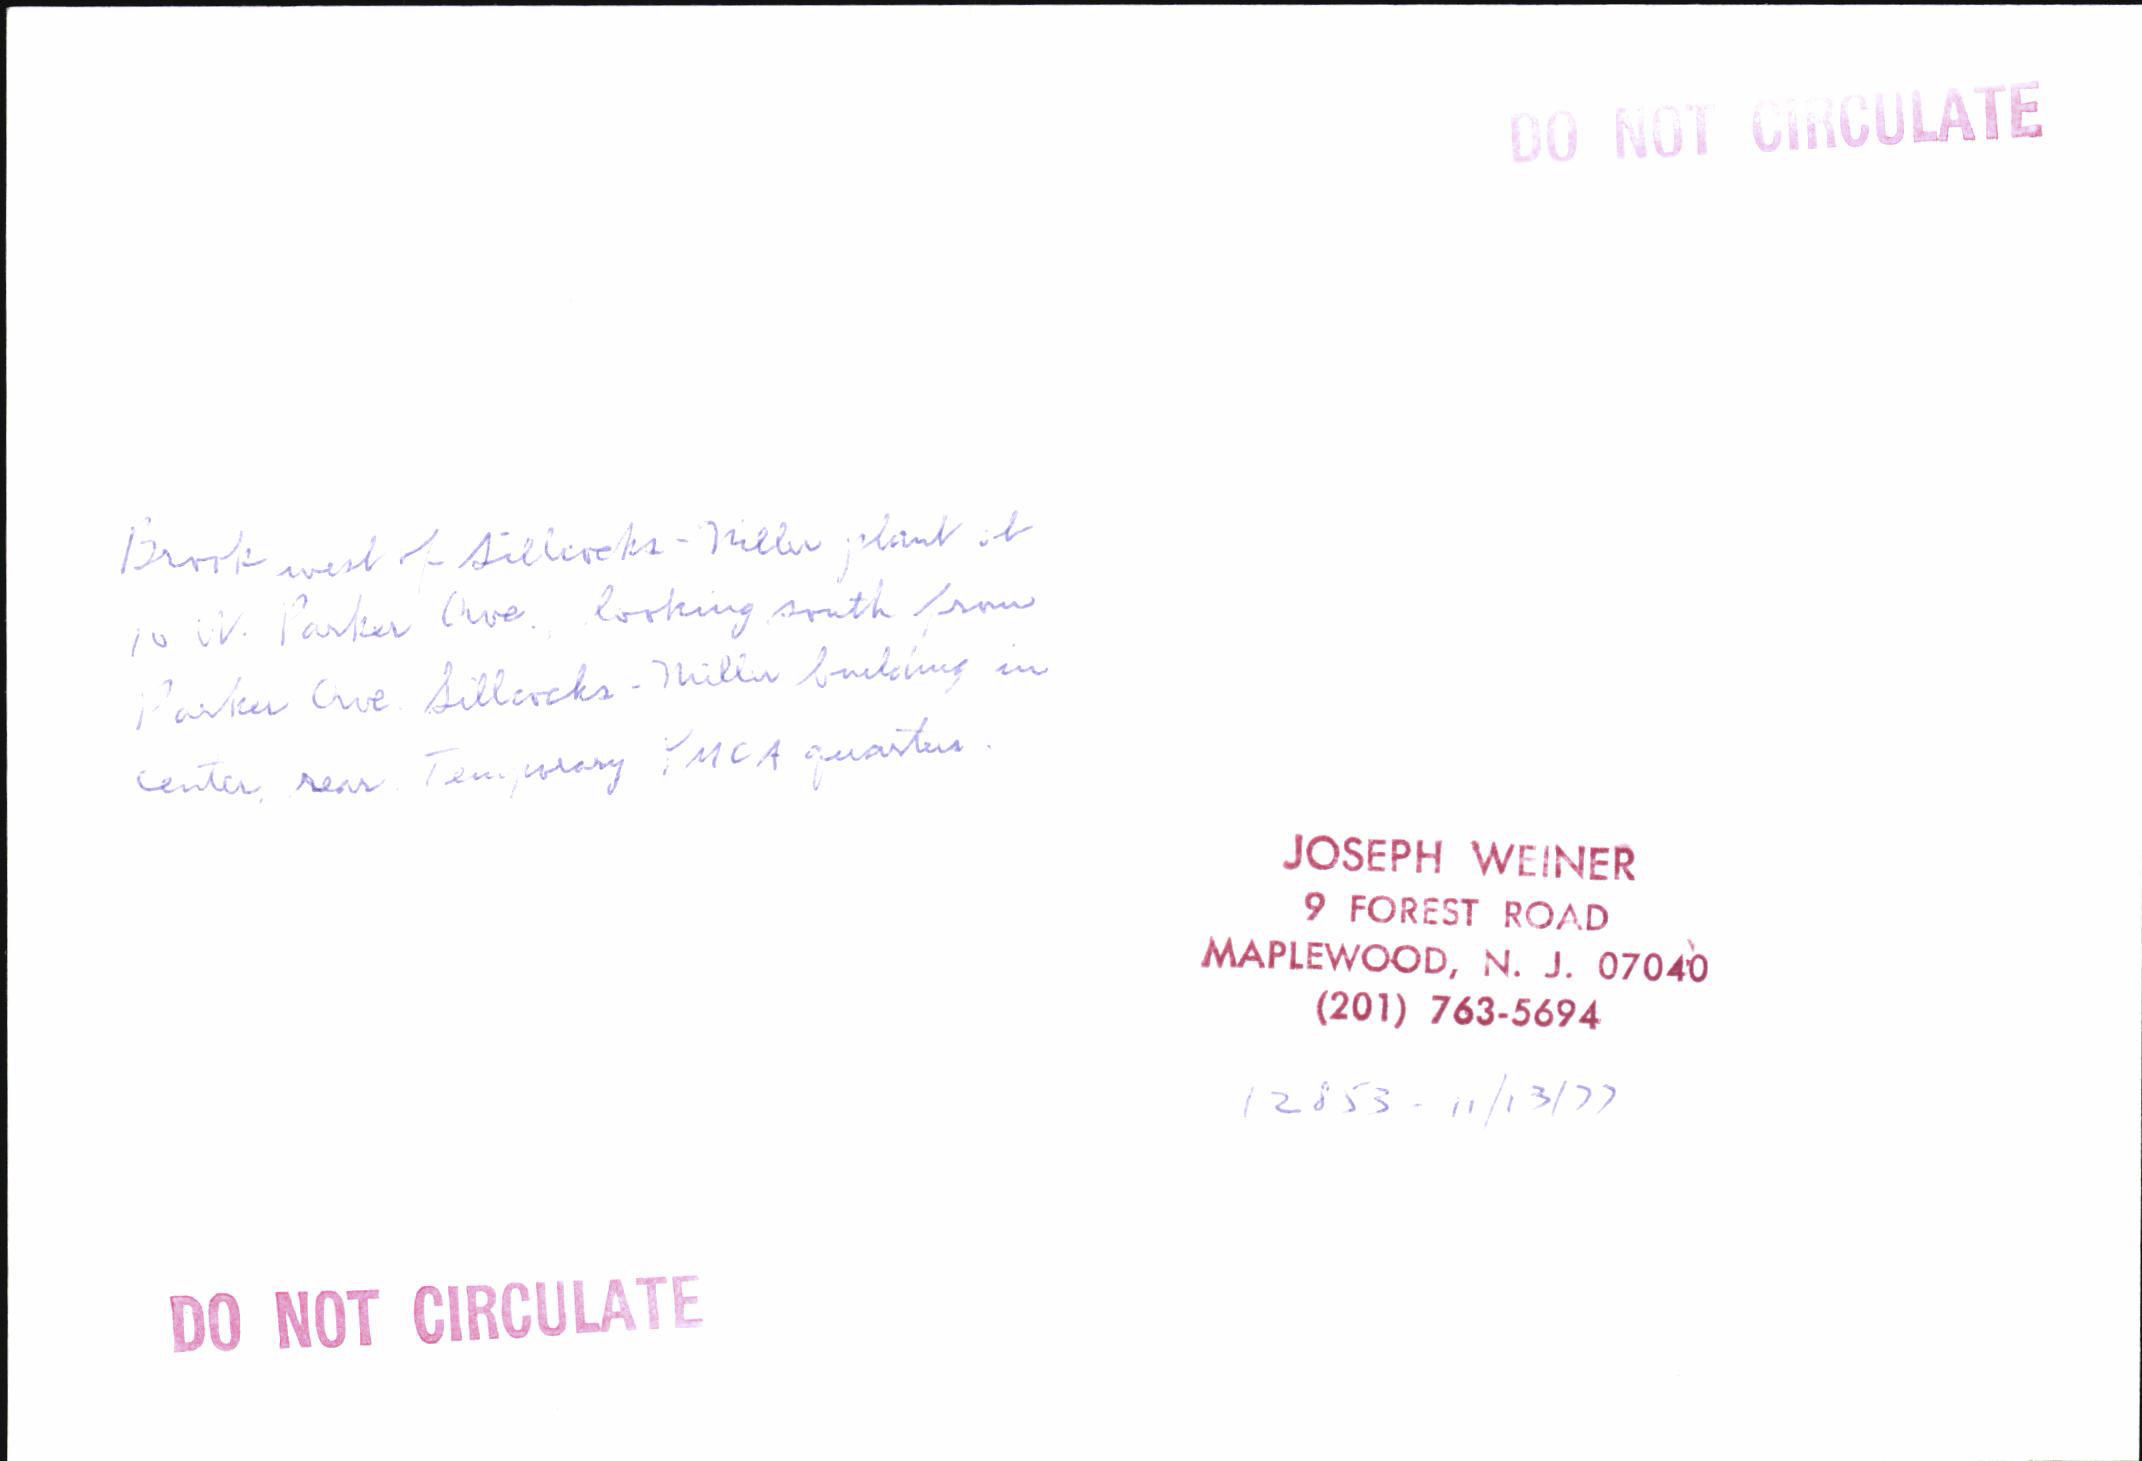 DO NOT CIRCULATE
Brook west of Sillcocks-Miller plant at
10 W. Parker Ave., looking south from
Parker Ave. Sillcocks-Miller building in
center, rear. Temporary YMCA quarters.
JOSEPH WEINER
9 FOREST ROAD
MAPLEWOOD, N. J. 07040
(201) 763-5694
12853 - 11/13/77
DO NOT CIRCULATE